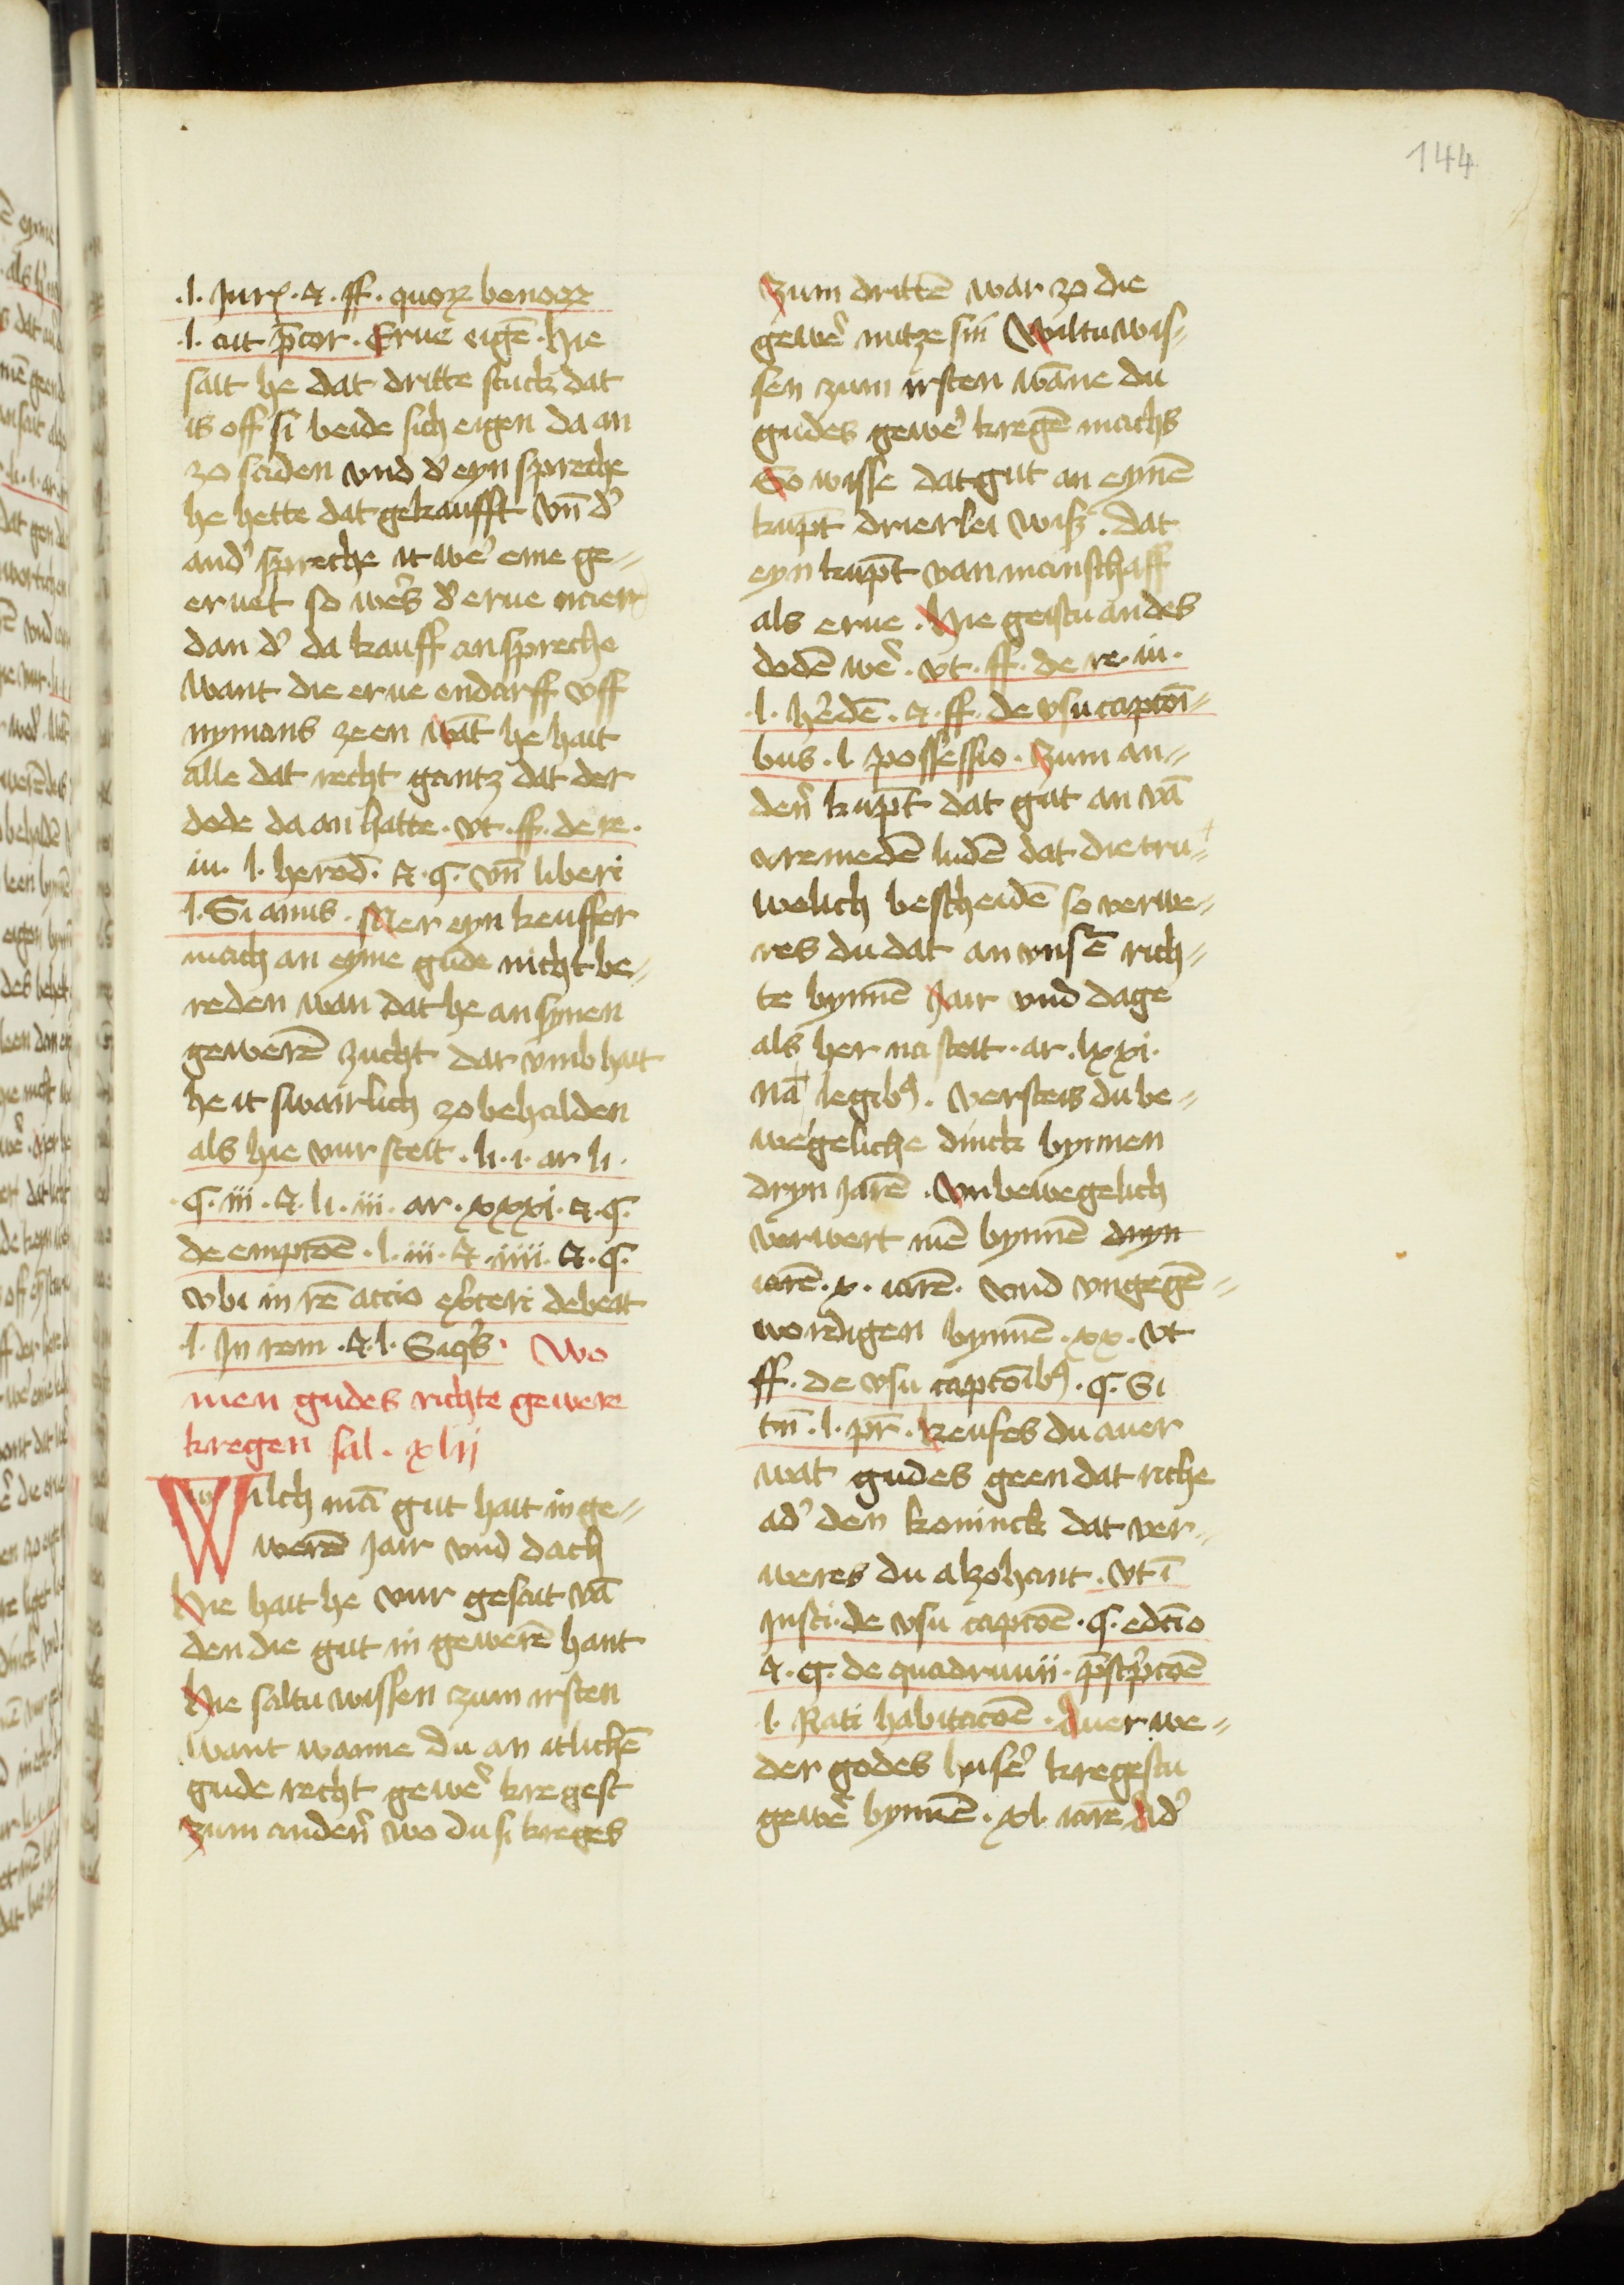 144
.l. Jurꝭ. ⁊. ff. quoꝝ bonoꝝ
.l. ait p̄tor. Erue eigē. hie
sait he dat dritte stuck dat
is off si beide sich eigen da an
zo saden vnd d' eyn spreche
he hette dat gekaufft vn̄ d'
and' spreche it we' eme ge-
eruet so we's d' erue naer
dan d' da kauff an spreche
want die erue endarff vff
nymans zeen wāt he hait
alle dat recht gantz dat der
dode da an hatte. vt. ff. de re.
iu. l. hered̄. ⁊. ꝯ. vn̄ liberi
.l. Si anus. Mer eyn keuffer
mach an eyme gude nicht be-
reden wan dat he an synen
gewerē zucht dar vmb hait
he it swairlich zo behalden
als hie vur steit. li. i. ar li.
.ꝯ. iii. ⁊. li. iii. ar. xxxi. ⁊. ꝯ.
de emptōe. l. iii. ⁊. iiii. ⁊. ꝯ.
vbi in rē actio ex̄ceri debeat
.l. In rem. ⁊. l. Siq's. Wo
men gudes richte gewere
kregen sal. xlii
Wilch mā gut hait in ge-
werē Jair vnd dach
Hie hait he vur gesait vā
den die gut in gewerē hant
Hie saltu wissen zum irsten
want wanne du an itlichē
gude recht gewe' kregest
Zum anden' wo du si kreges
Zum drittē war zo die
gewe' nutze sin Wiltu wis-
sen zum irsten wāne du
gudes gewe' kregē machs
So wisse dat gut an eymē
kupt drierlei wisz. dat
eyn kupt van manschaff
als erue. Hie geistu an des
dodē we'. vt. ff. de re. iu.
.l. he'dē. ⁊. ff. de vsu captōi-
bus. l. possessio. Zum an-
den' kupt dat gut an vā
vremedē ludē dat die tru-
welich bescheidē so verwe-
res du dat an vnsē rich-
te bynnē Jair vnd dage
als her na steit. ar. lxxi.
Nā legibꝰ. Versteis du be-
wegeliche dinck bynnen
dryn Jarē. Vnbewegelich
verwert mē bynnē dryn
iarē. x. iarē. vnd vngegē-
wordigen bynnē. xx. vt
ff. de vsu captōibꝰ. ꝯ. Si
tm̄. l. pr̄. keufes du auer
wat gudes geen dat riche
ad' den koninck dat ver-
weres du alzohant. vt ī
Insti. de vsu captōe. ꝯ. edc̄io
⁊. ꝯ. de quadruuii. p̄scp'tōe
.l. Rati habitacōe. Auer we-
der godes huse' kregestu
gewe' bynnē. xl. iarē Ad'